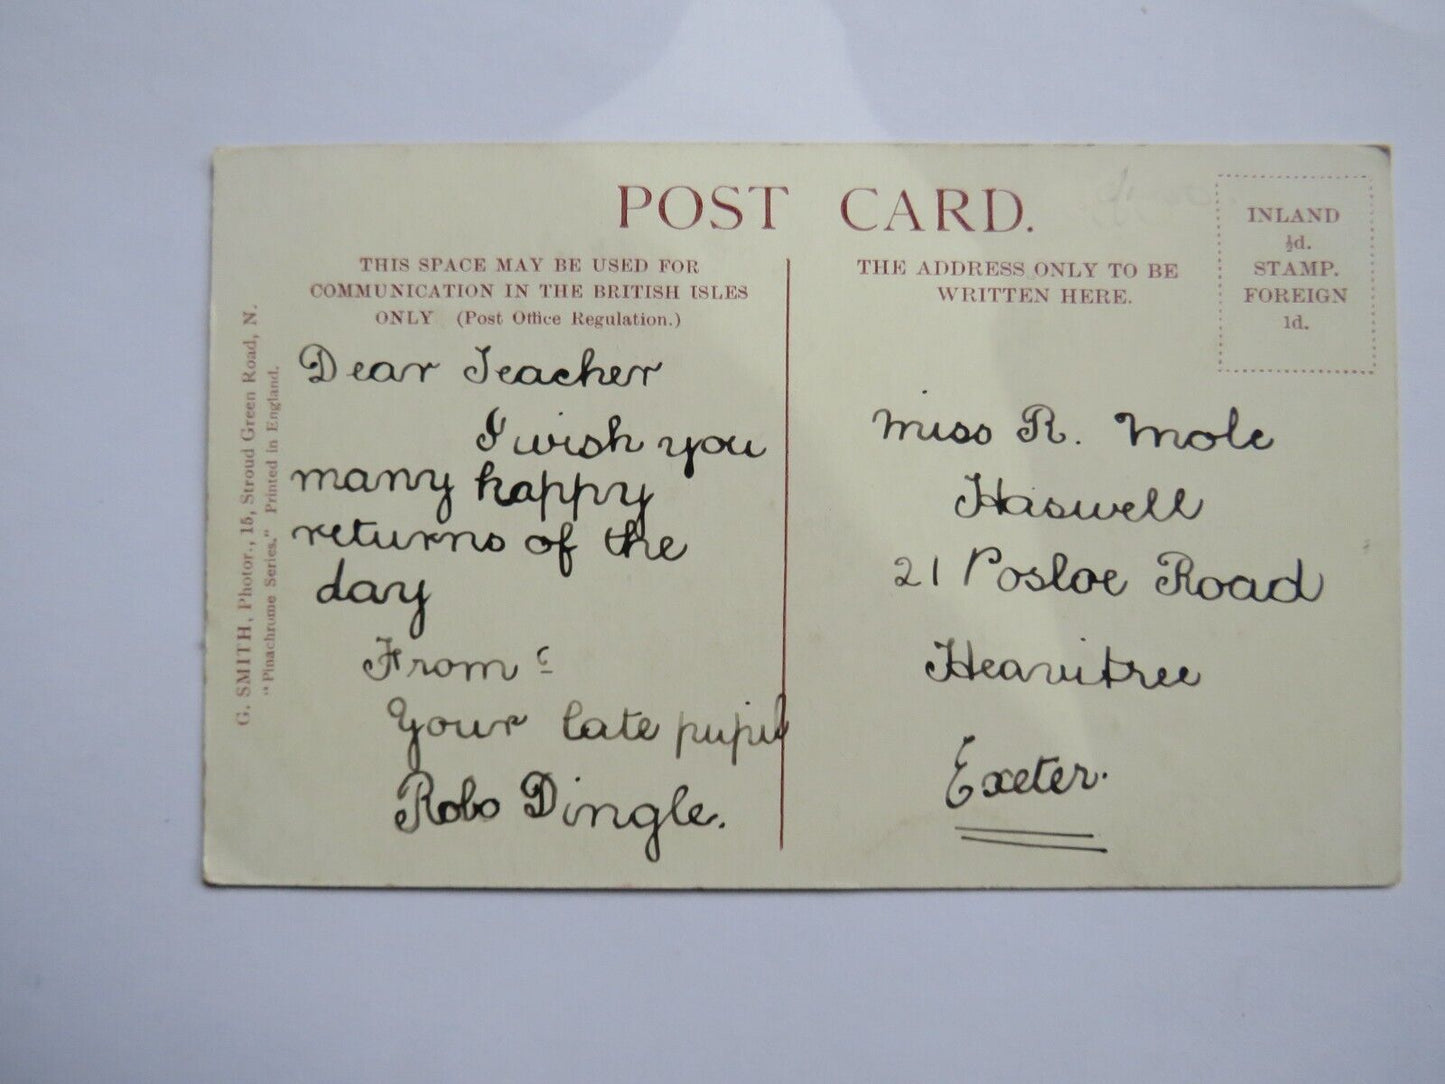 POST CARD.
THIS SPACE MAY BE USED FOR
COMMUNICATION IN THE BRITISH ISLES
ONLY (Post Office Regulation.)
THE ADDRESS ONLY TO BE
WRITTEN HERE.
INLAND
½d.
STAMP.
FOREIGN
1d.
G. SMITH, Photor., 15, Stroud Green Road, N.
"Pinachrome Series." Printed in England.
Dear Teacher
I wish you
many happy
returns of the
day
From
Your late pupil
Robo Dingle.
Miss R. Mole
Haswell
21 Posloe Road
Heavitree
Exeter.